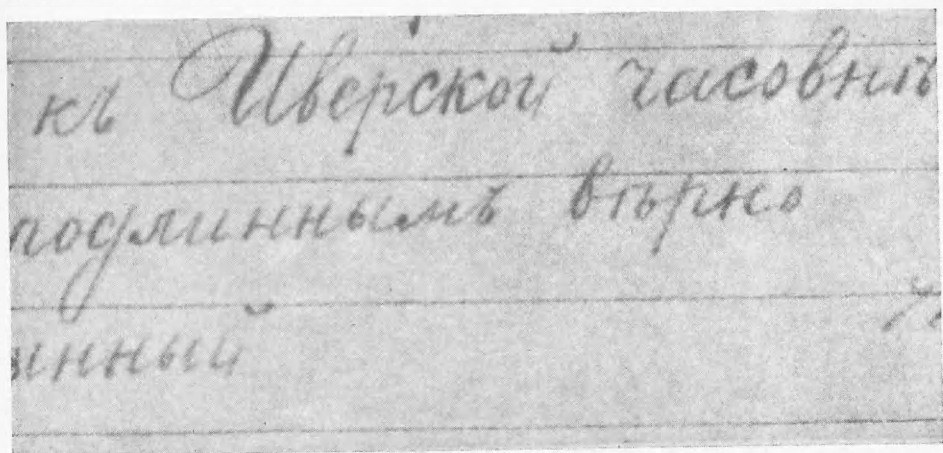 къ Иверской часовнѣ
подлиннымъ вѣрно
инный